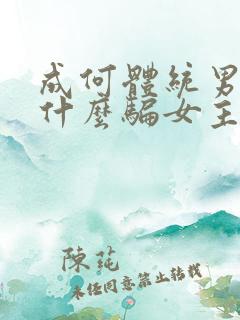 成何體統男
什麼騙女主
陳莼
未經同意禁止轉載